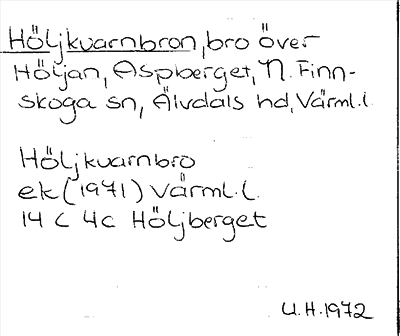 Höljkvarnbron, bro över
Höljan, Aspberget, N. Finn-
skoga sn, Älvdals hd, Värml.l.
Höljkvarnbro
ek (1971) Värml.l.
14 C 4c Höljberget
U.H.1972